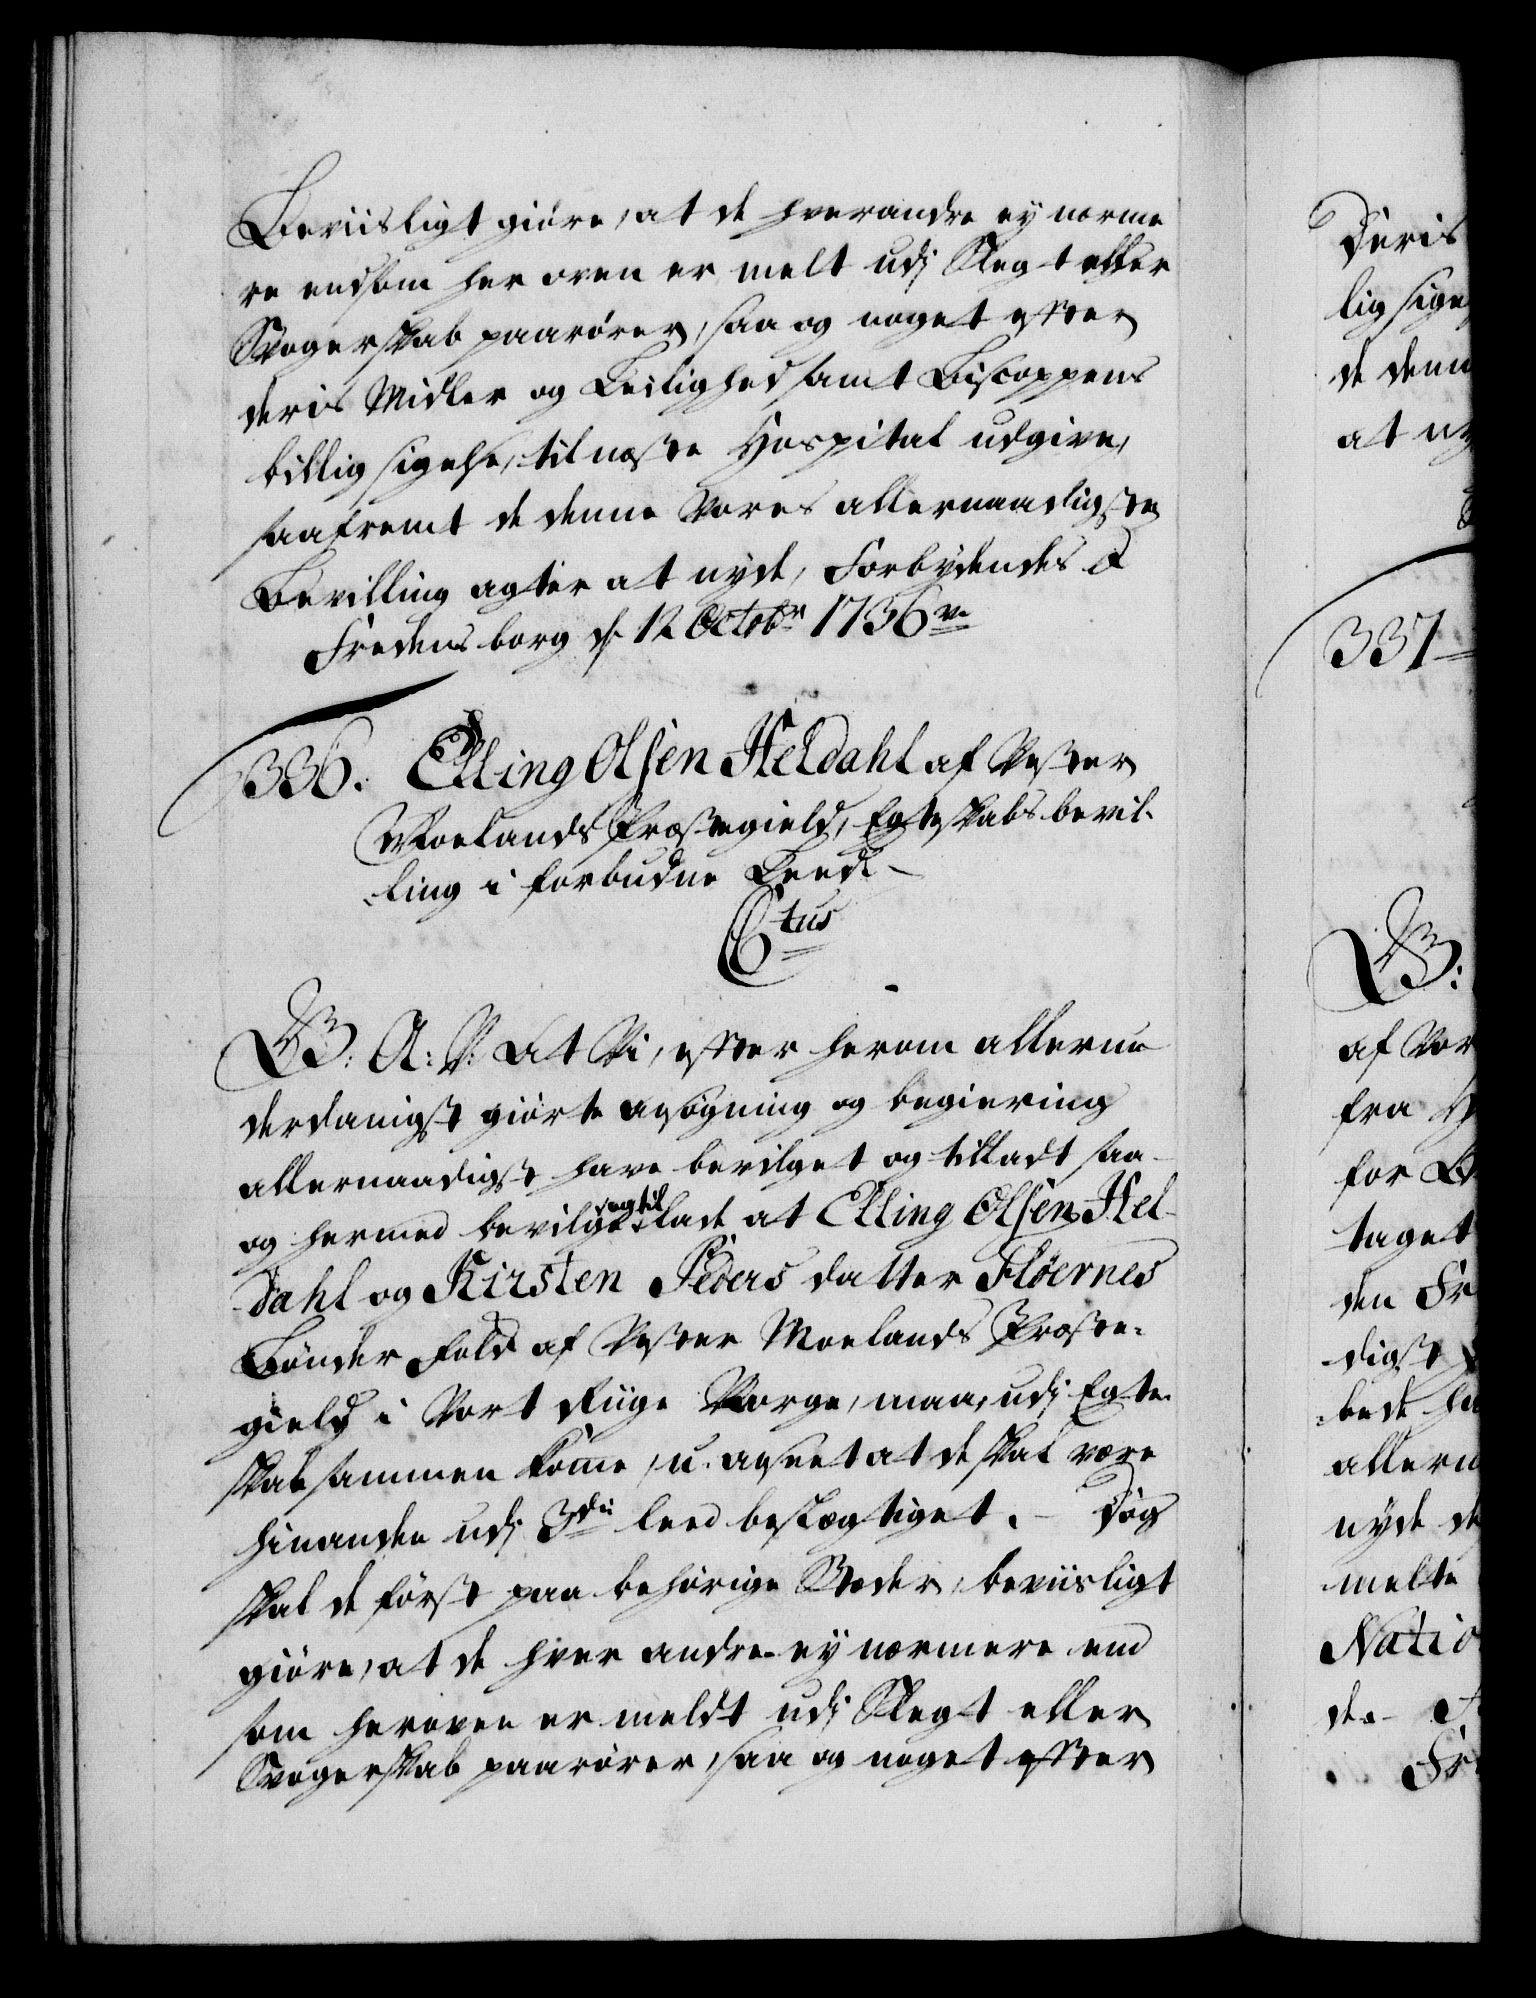 Beviisligt giøre, at de hverandre ey nærme
re end som her oven er melt udj Slegt eller
Svogerskab paarører, saa og noget efter
deris Midler og Leilighed samt Biscoppens
billig sigelse, til næste Hospital udgive,
saafremt de denne Vores allernaadigste
Bevilling agter at nyde, Forbydendes &
Fredensborg d. 12 Octobr 1736
336. Elling Olsen Heldahl af Vester
Moelands Præstegield, Egteskabs bevil-
ling i forbudne Leed.
Ctus
G: A: V: at Vi, efter herom allerun
derdanigst giorte ansøgning og begiering
allernaadigst have bevilget og tilladt saa
og hermed bevilge og tillade at Elling Olsen Hel-
dahl og Kirsten Peders datter Fløernes
Bønder Folk af Vester Moelands Præste-
gield i Vort Rige Norge, maa, udj Egte-
skab sammen komme, u-anseet at de skal være
hinanden udj 3die leed beslægtiget. Dog
skal de først paa behørige Stæder, beviisligt
giøre, at de hver andre ey nærmere end
som heroven er meldt udj Slegt eller
Svogerskab paarører, saa og noget efter
Deris
lig sige
de denn
at ny
337
G:
af Vor
fra
for
taget
den Fr
digst
bede ha
allern
nyde de
melte
Natio
de.
Fr